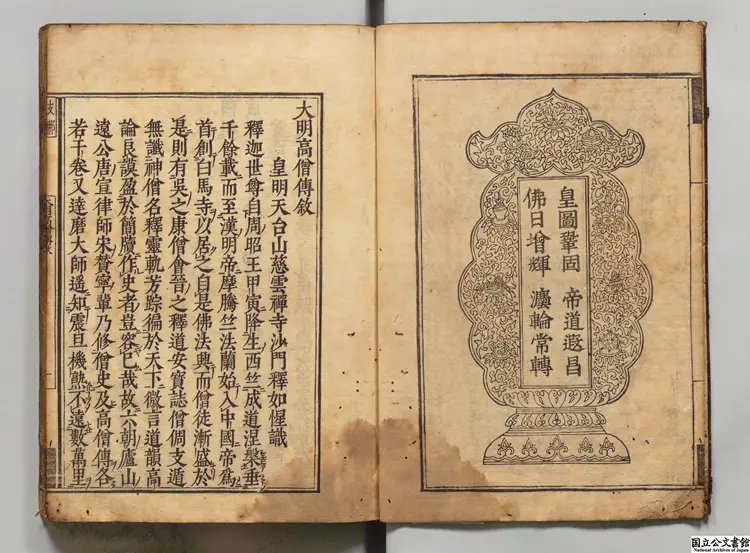 皇圖鞏固 帝道遐昌
佛日增輝 灋輪常轉
大明高僧傳敘
皇明天台山慈雲禪寺沙門釋如惺譔
釋迦世尊自周昭王甲寅降生西竺成道涅槃垂
千餘載而至漢明帝摩騰竺法蘭始入中國帝爲
首創白馬寺以居之自是佛法興而僧徒漸盛於
是則有吳之康僧會晉之釋道安寶誌僧倜支遁
無讖神僧名釋靈軌芳踪徧於天下微言道韻高
論良謨盈於簡牘作史者豈容已哉故六朝廬山
遠公唐宣律師宋贊寧輩乃修僧史及高僧傳各
若干卷又達磨大師遙知震旦機熟不遠數萬里
国立公文書館
National Archives of Japan